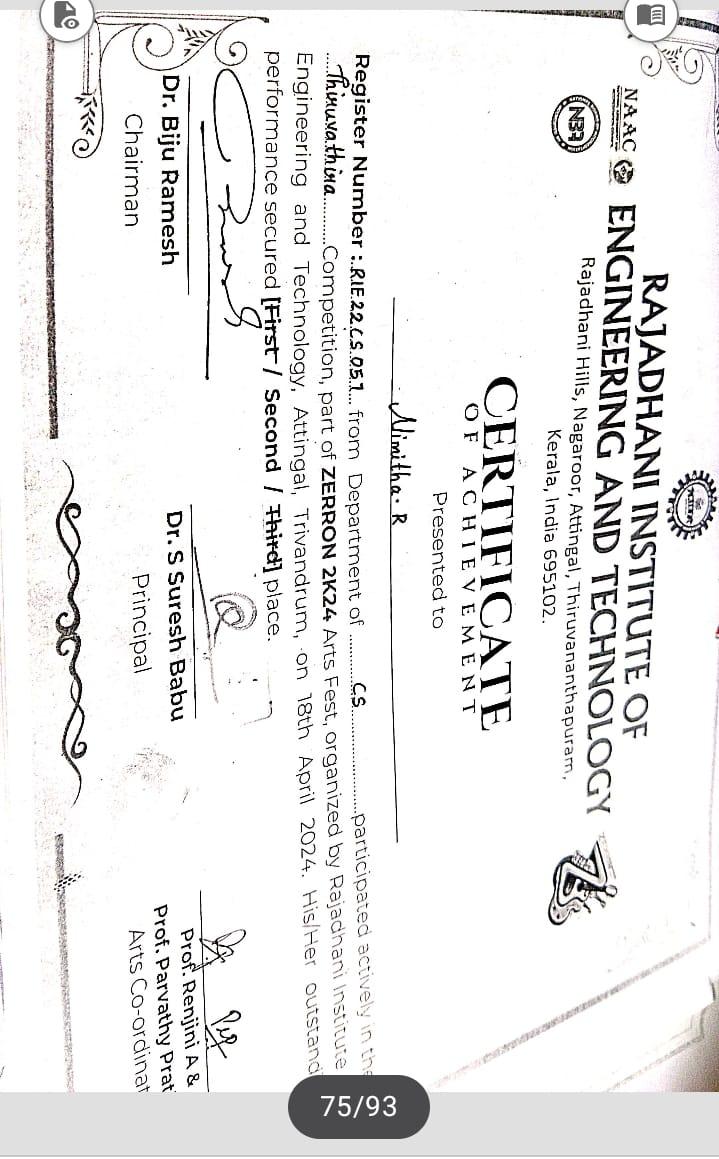 RAJADHANI INSTITUTE OF
NAAC ENGINEERING AND TECHNOLOGY
NBA
Rajadhani Hills, Nagaroor, Attingal, Thiruvananthapuram,
Kerala, India 695102.
CERTIFICATE
OF ACHIEVEMENT
Presented to
Nimitha. R
Register Number : RIE22CS051 from Department of CS participated actively in the
Thiruvathira Competition, part of ZERRON 2K24 Arts Fest, organized by Rajadhani Institute
Engineering and Technology, Attingal, Trivandrum, on 18th April 2024. His/Her outstand
performance secured [First / Second / Third] place.
Dr. Biju Ramesh
Chairman
Dr. S Suresh Babu
Principal
Prof. Renjini A &
Prof. Parvathy Prat
Arts Co-ordinat
75/93